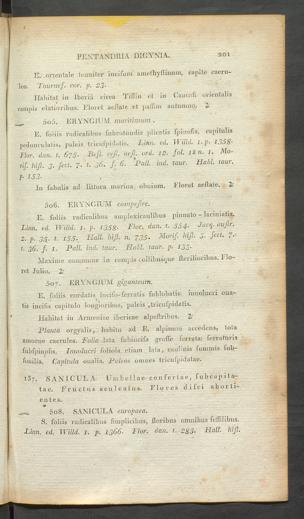 PENTANDRIA DIGYNIA. 201
E. orientale tenuiter incisum amethystinum, capite caeru-
leo. Tournef. cor. p. 23.
Habitat in Iberia circa Tiflin et in Caucasi orientalis
campis elatioribus. Floret aestate et passim autumno. ♃
505. ERYNGIUM maritimum.
E. foliis radicalibus subrotundis plicatis spinosis, capitulis
pedunculatis, paleis tricuspidatis. Linn. ed. Willd. 1. p. 1358.
Flor. dan. t. 675. Besl. eyst. aest. ord. 12. fol. 12 n. 1. Mo-
ris. hist. 3. sect. 7. t. 36. f. 6. Pall. ind. taur. Habl. taur.
p. 153.
In sabulis ad littora marina obuium. Floret aestate. ♃
506. ERYNGIUM campestre.
E. foliis radicalibus amplexicaulibus pinnato-laciniatis.
Linn. ed. Willd. 1. p. 1358. Flor. dan. t. 554. Jacq. austr.
2. p. 35. t. 155. Hall. hist. n. 735. Moris. hist. 3. sect. 7.
t. 36. f. 1. Pall. ind. taur. Habl. taur. p. 153.
Maxime commune in campis collibusque sterilioribus. Flo-
ret Julio. ♃
507. ERYNGIUM giganteum.
E. foliis cordatis inciso-serratis sublobatis: inuolucri oua-
tis incisis capitulo longioribus, paleis tricuspidatis.
Habitat in Armeniae ibericae alpestribus. ♃
Planta orgyalis, habitu ad E. alpinum accedens, tota
amoene caerules. Folia lata subincisa grosse serrata: serraturis
subspinosis. Inuolucri foliola etiam lata, mollia summis sub-
similia. Capitula oualia. Paleis omnes tricuspidatae.
137. SANICULA. Umbellae confertae, subcapita-
tae. Fructus aculeatus. Flores disci aborti-
entes.
508. SANICULA europaea.
S. foliis radicalibus simplicibus, floribus omnibus sessilibus.
Linn. ed. Willd. 1. p. 1366. Flor. dan. t. 283. Hall. hist.